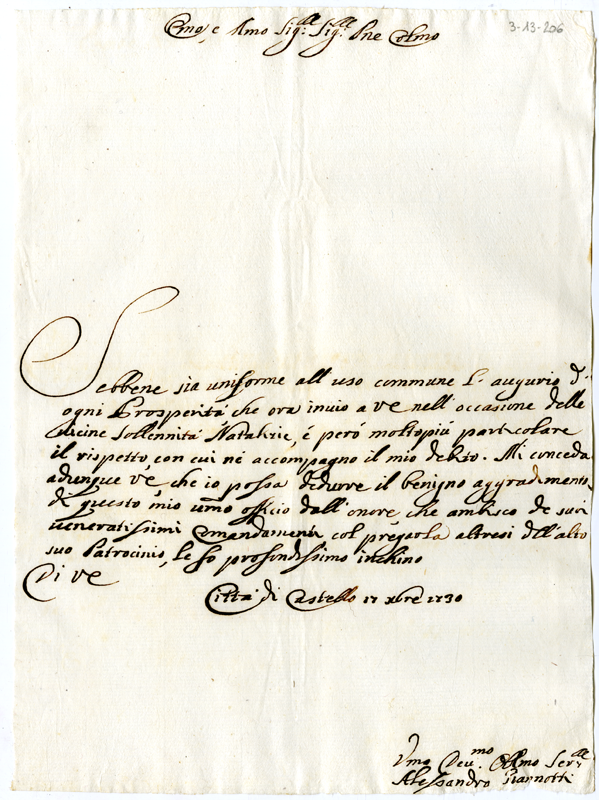 3-13-206
Emo, e Rmo Sig:re Sig:re Pne Colmo
Sebbene sia uniforme all'uso commune l'augurio d'
ogni Prosperità che ora invio a VE nell'occasione delle
divine sollennità Natalizie, é peró molto più particolare
il rispetto, con cui né accompagno il mio debito. Mi conceda
adunque VE, che io possa dedurre il benigno aggradimento
di questo mio umo officio dall'onore, che ambisco de suoi
veneratissimi Comandamenti col pregarla altresi dell'alto
suo Patrocinio, le fo profondissimo inchino
Di VE
Città di Castello 17 Xbre 1730
Vmo Deu:mo Obbmo Ser:re
Alessandro Giannotti